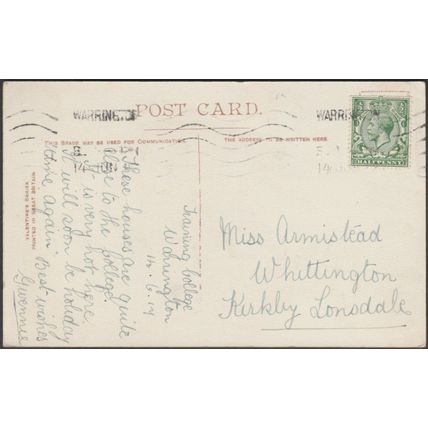 WARRINGTON
WARRINGTON
POST CARD.
THIS SPACE MAY BE USED FOR COMMUNICATION.
THE ADDRESS TO BE WRITTEN HERE.
HALFPENNY
VALENTINE'S SERIES
PRINTED IN GREAT BRITAIN
Training College
Warrington
14.6.14
These houses are quite
close to the College.
It is very hot here.
It will soon be holiday
time again. Best wishes
Gwennie
Miss Armistead
Whittington
Kirkby Lonsdale